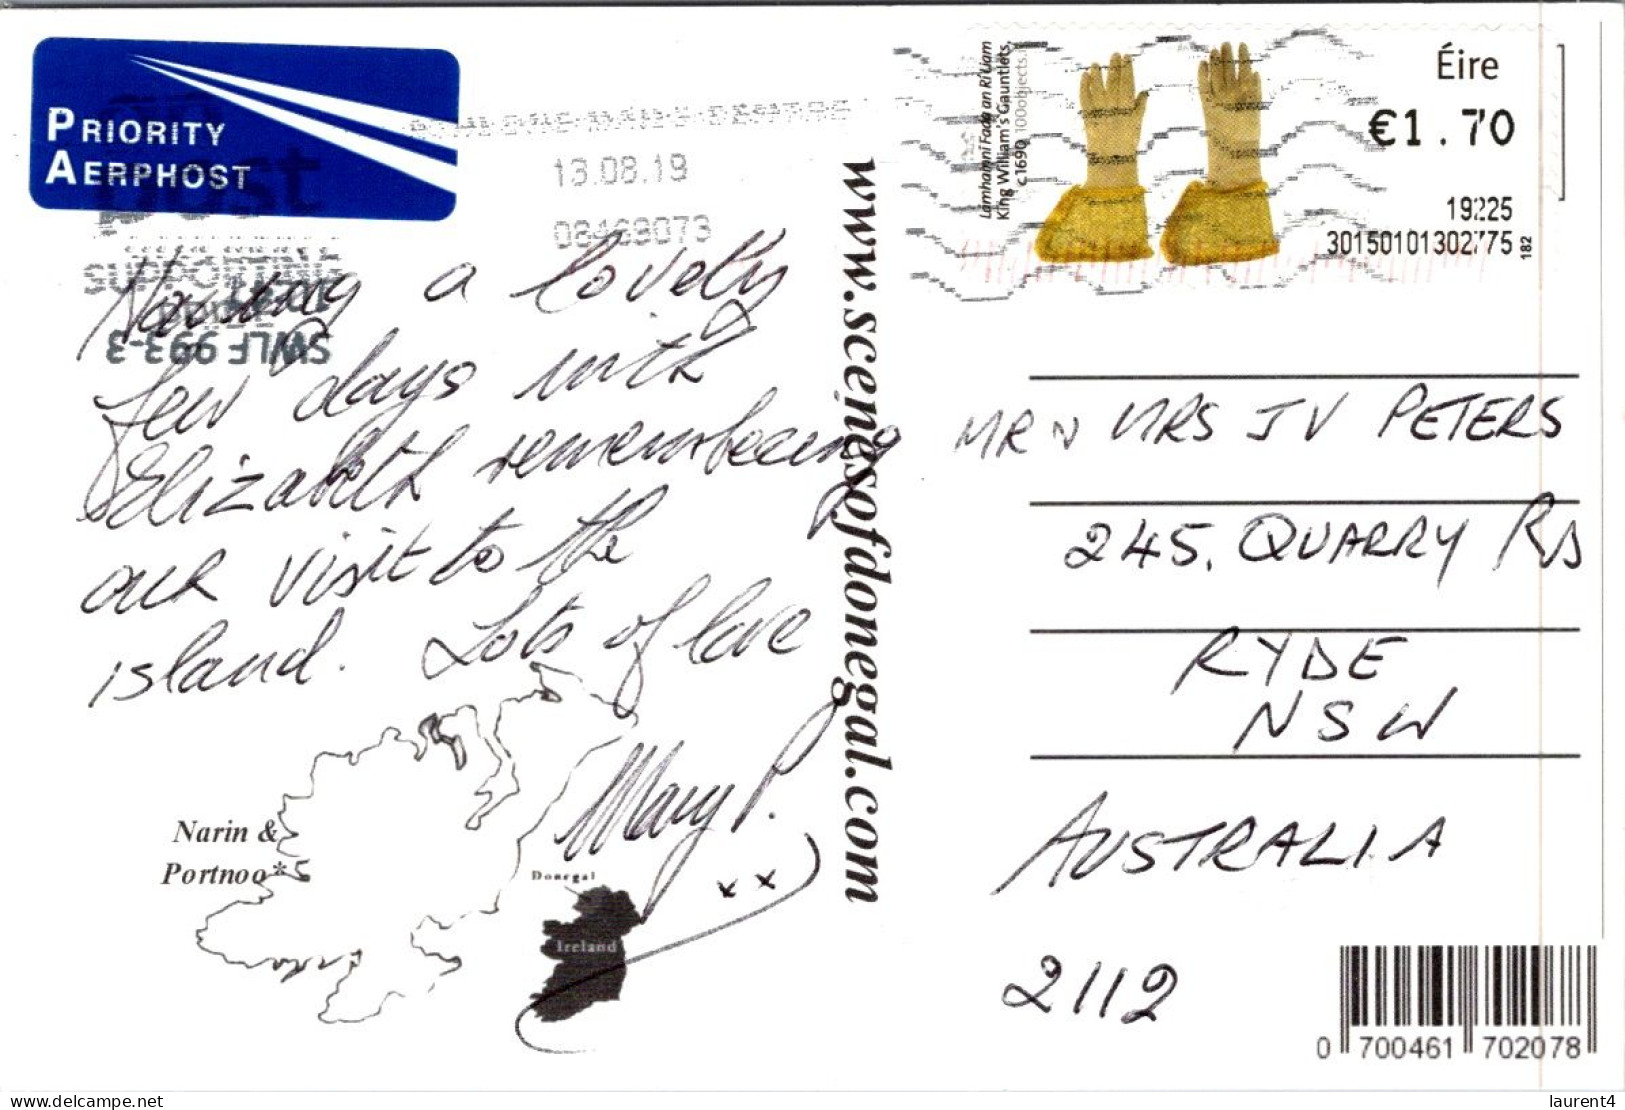 PRIORITY
AERPHOST
13.08.19
08469073
SUPPORTING
SWLF 993-3
Lámhainní Fada an Rí Liam
King William's Gauntlets,
c.1690 100objects.
Éire
€1.70
19225
30150101302775
182
Having a lovely
few days with
Elizabeth remembering
our visit to the
island. Lots of love
Mary P.
x x
Narin &
Portnoo*
Donegal
Ireland
www.scenesofdonegal.com
MR N MRS J V PETERS
245. QUARRY RD
RYDE
NSW
AUSTRALIA
2112
0 700461 702078
laurent4